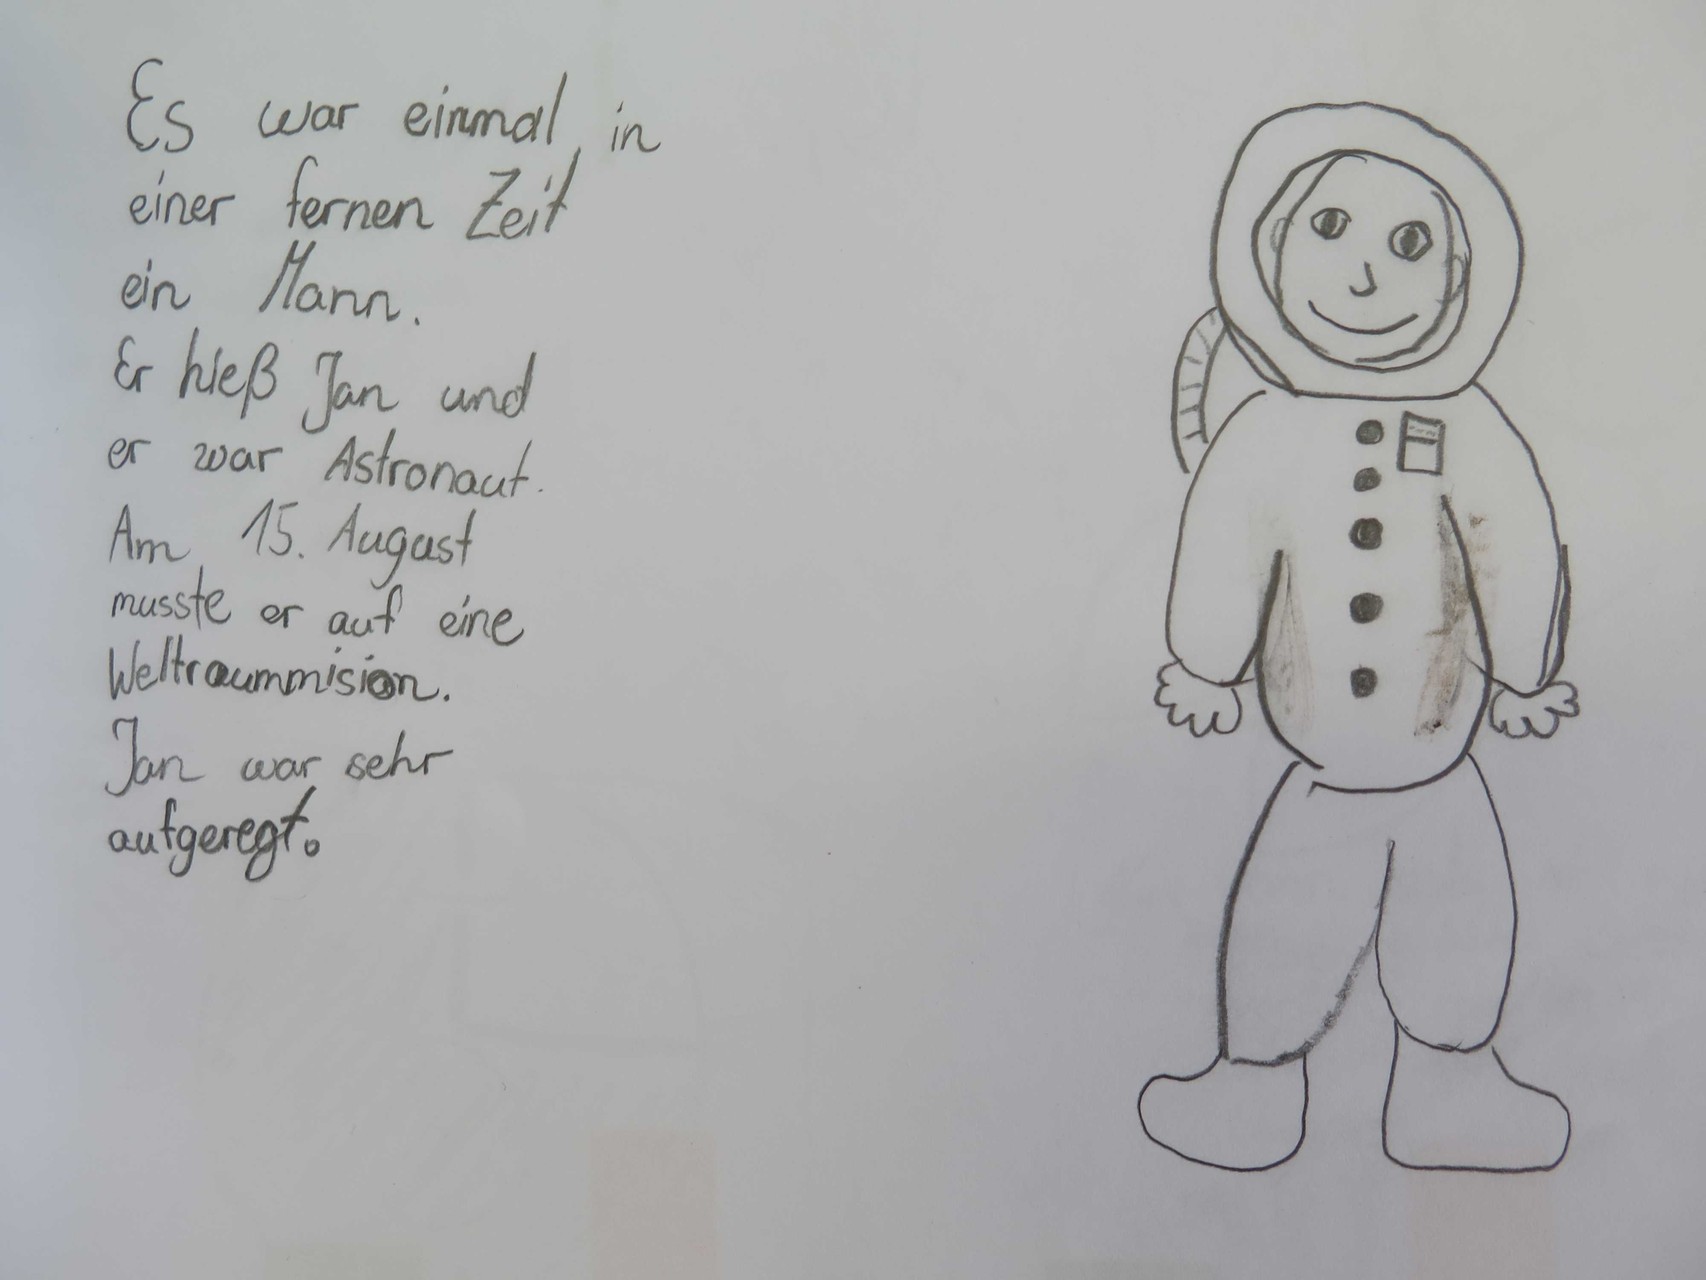 Es war einmal, in
einer fernen Zeit
ein Mann.
Er hieß Jan und
er war Astronaut.
Am 15. August
musste er auf eine
Weltraummision.
Jan war sehr
aufgeregt.